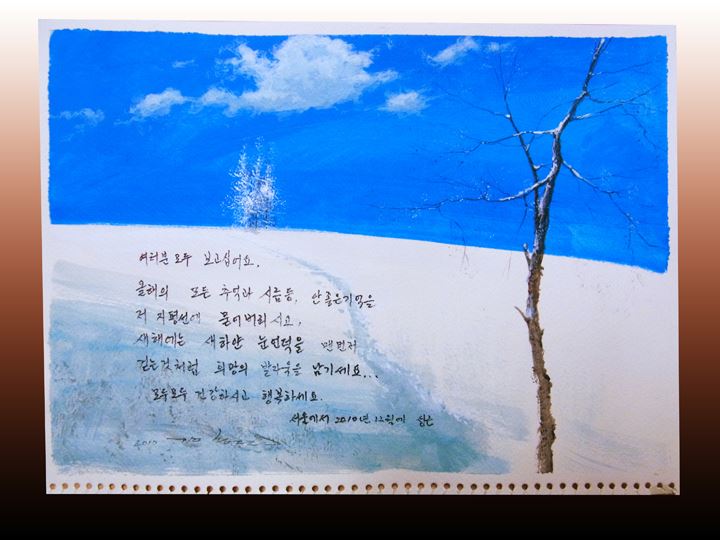 여러분 모두 보고십어요.
올해의 모든 추억과 시름등, 안좋은기억을
저 지평선에 묻어버리시고,
새해에는 새하얀 눈언덕을 맨먼저
걷는것처럼 희망의 발자욱을 남기세요...
모두모두 건강하시고 행복하세요.
서울에서 2010년 12월에
2010